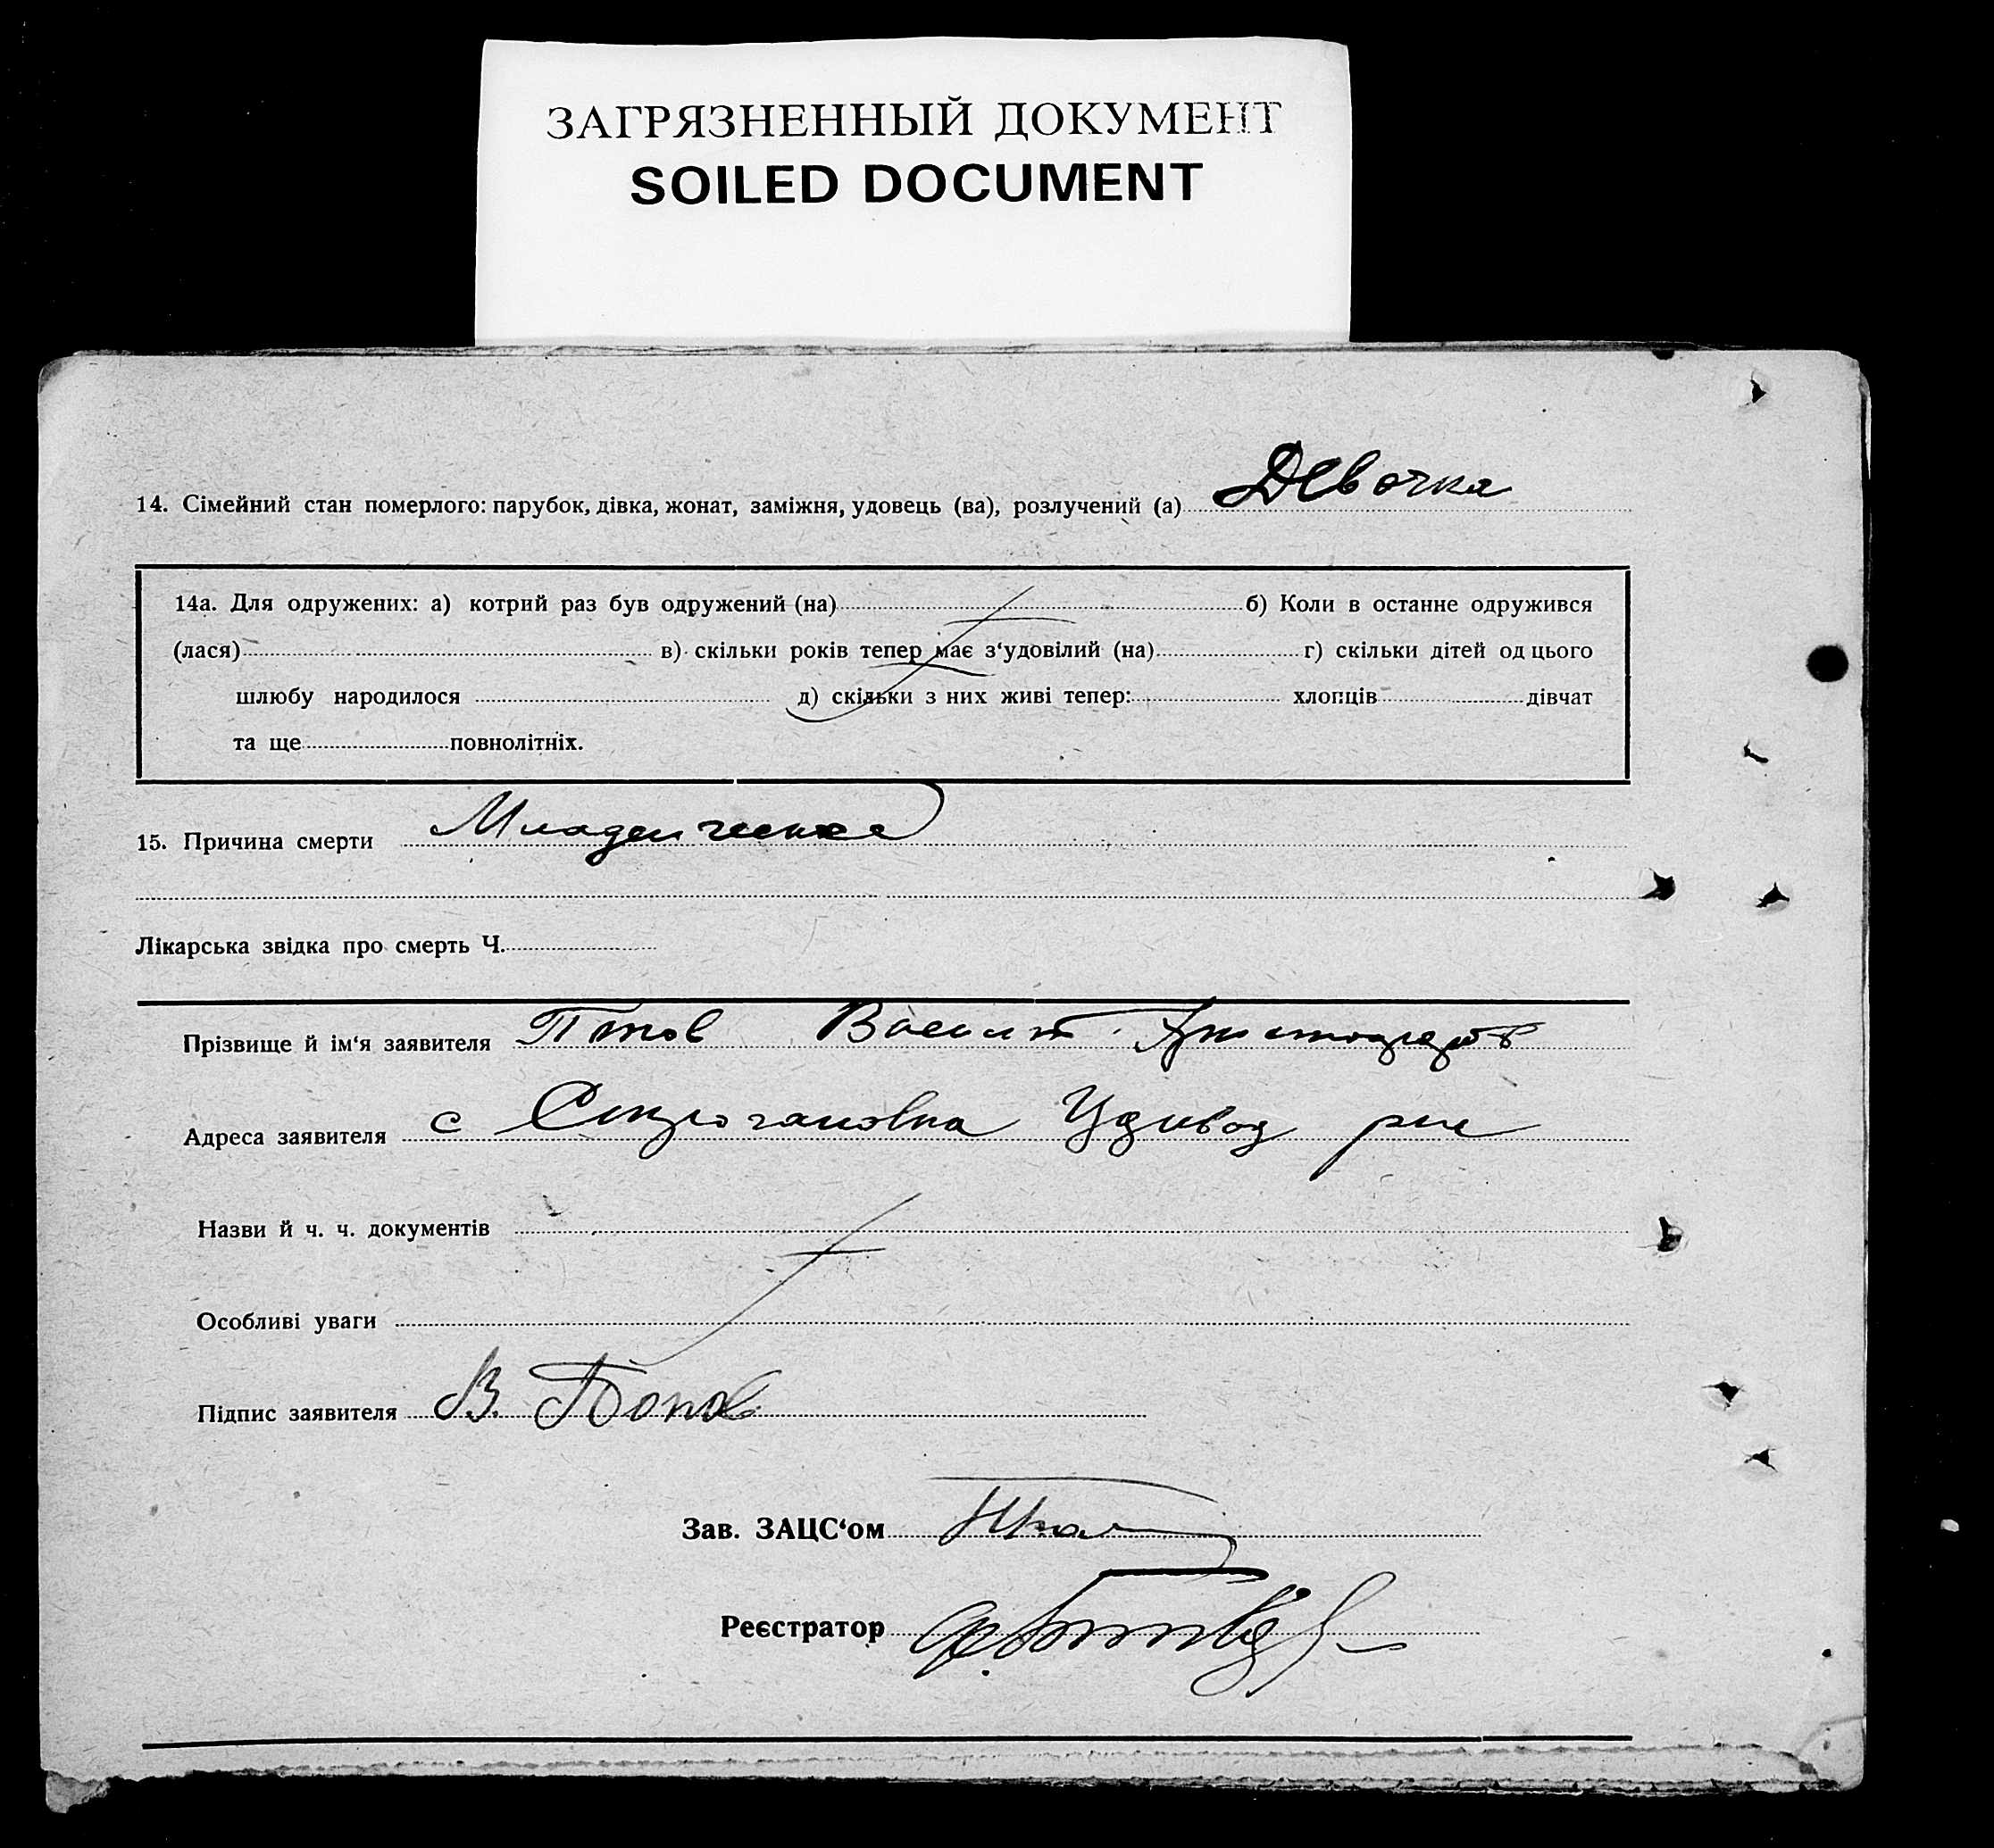 ЗАГРЯЗНЕННЫЙ ДОКУМЕНТ
SOILED DOCUMENT
14. Сімейний стан померлого: парубок, дівка, жонат, заміжня, удовець (ва), розлучений (а) Девочка
14а. Для одружених: а) котрий раз був одружений (на) б) Коли в останне одружився
(лася) в) скільки років тепер має з‘удовілий (на) г) скільки дітей од цього
шлюбу народилося д) скільки з них живі тепер: хлопців дівчат
та ще повнолітніх.
15. Причина смерти Младенческая
Лікарська звідка про смерть Ч.
Прізвище й ім‘я заявителя
Адреса заявителя с
Назви й ч. ч. документів
Особливі уваги
Підпис заявителя В. Попов
Зав. ЗАЦС‘ом
Реєстратор